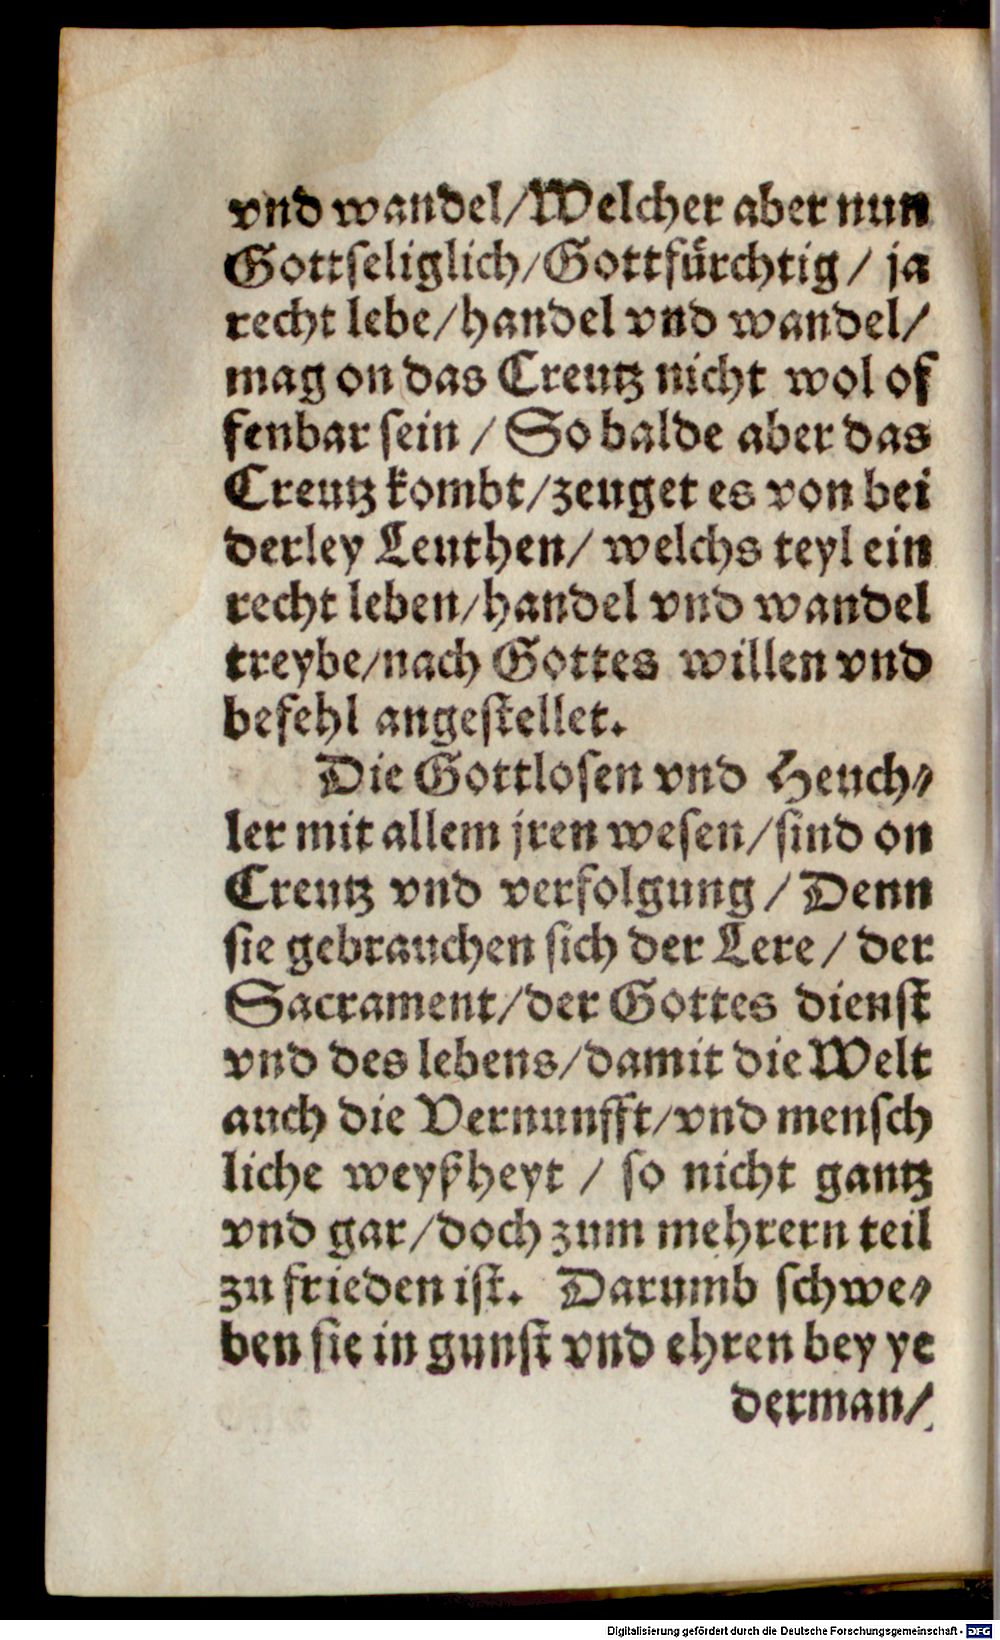 vnd wandel/Welcher aber nun
Gottseliglich/Gottfürchtig/ ja
recht lebe/handel vnd wandel/
mag on das Creutz nicht wol of
fenbar sein / So balde aber das
Creutz kombt/zeuget es von bei
derley Leuthen/ welchs teyl ein
recht leben/handel vnd wandel
treybe/nach Gottes willen vnd
befehl angestellet.
Die Gottlosen vnd Heuch⸗
ler mit allem jren wesen/sind on
Creutz vnd verfolgung / Denn
sie gebrauchen sich der Lere / der
Sacrament/der Gottes dienst
vnd des lebens/damit die Welt
auch die Vernunfft/vnd mensch
liche weyßheyt / so nicht gantz
vnd gar/doch zum mehrern teil
zu frieden ist. Darumb schwe⸗
ben sie in gunst vnd ehren bey ye
derman/
Digitalisierung gefördert durch die Deutsche Forschungsgemeinschaft - DFG